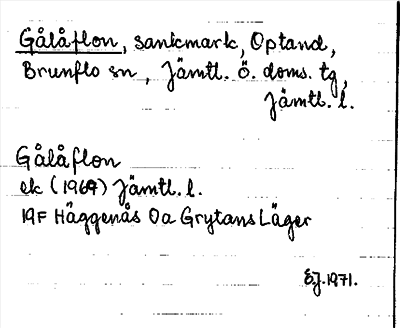 Gålåflon, sankmark, Optand,
Brunflo sn, Jämtl. ö. doms. tg,
Jämtl. l.
Gålåflon
ek (1969) Jämtl. l.
19F Häggenås Oa Grytans Läger
EJ. 1971.